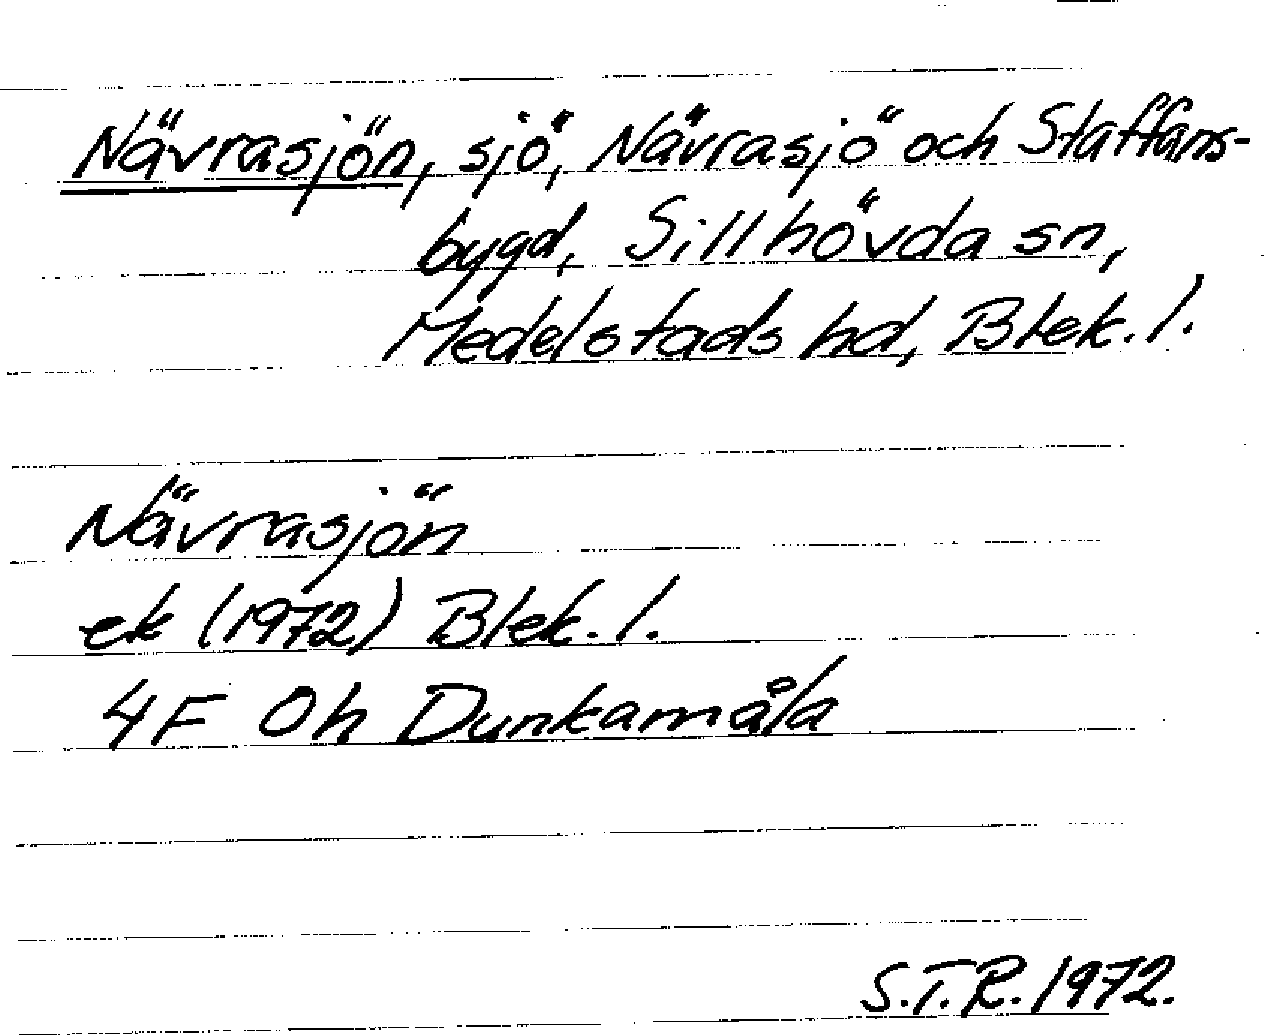 Nävrasjön, sjö, Nävrasjö och Staffans-
bygd, Sillhövda sn,
Medelstads hd, Blek. l.
Nävrasjön
ek (1972) Blek. l.
4F 0h Dunkamåla
S.T.R. 1972.